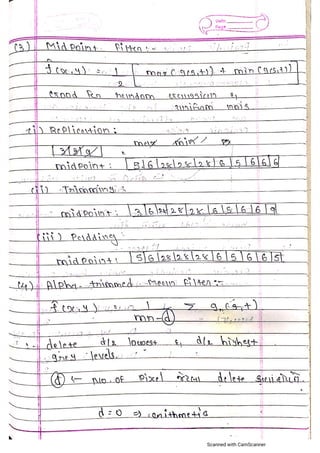 (3) MidPoint Filter :-
f̂(x,y) = 1/2 [ max(g(s,t)) + min(g(s,t)) ]
Good for random Gaussian &
uniform nois
(i) Replication :
max min
midpoint : |5|6|28|28|28|6|5|6|6|6
(ii) Trimming :
midpoint : |3|6|28|28|28|6|5|6|6|9|
(iii) Padding :
midpoint : |5|6|28|28|28|6|5|6|6|5|
(4) Alpha - trimmed Mean Filter :-
f̂(x,y) = 1/mn-d Σ gr(s,t)
delete d/2 lowest & d/2 highest
grey levels.
(d) ← No. of Pixel delete
d=0 ⇒ arithmetic
Scanned with CamScanner